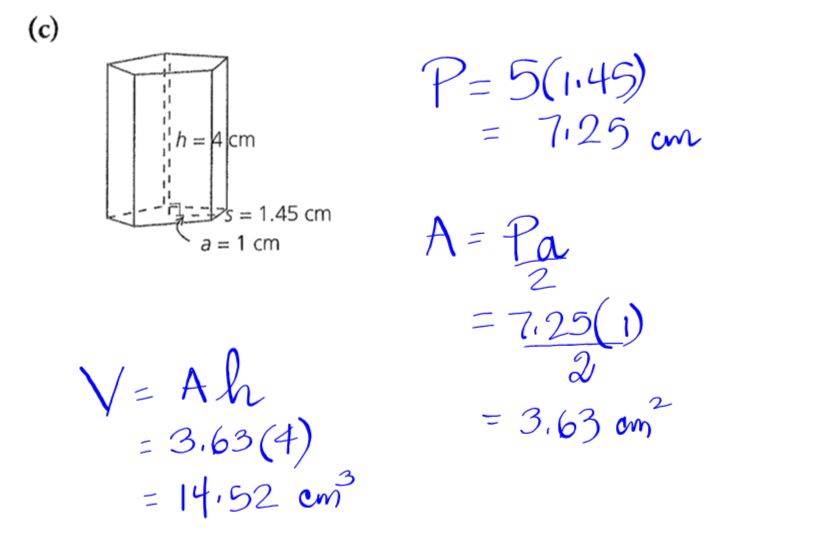 (c)
h = 4 cm
s = 1.45 cm
a = 1 cm
P = 5(1.45)
= 7.25 cm
A = Pa/2
= 7.25(1)/2
= 3.63 cm²
V = Ah
= 3.63(4)
= 14.52 cm³